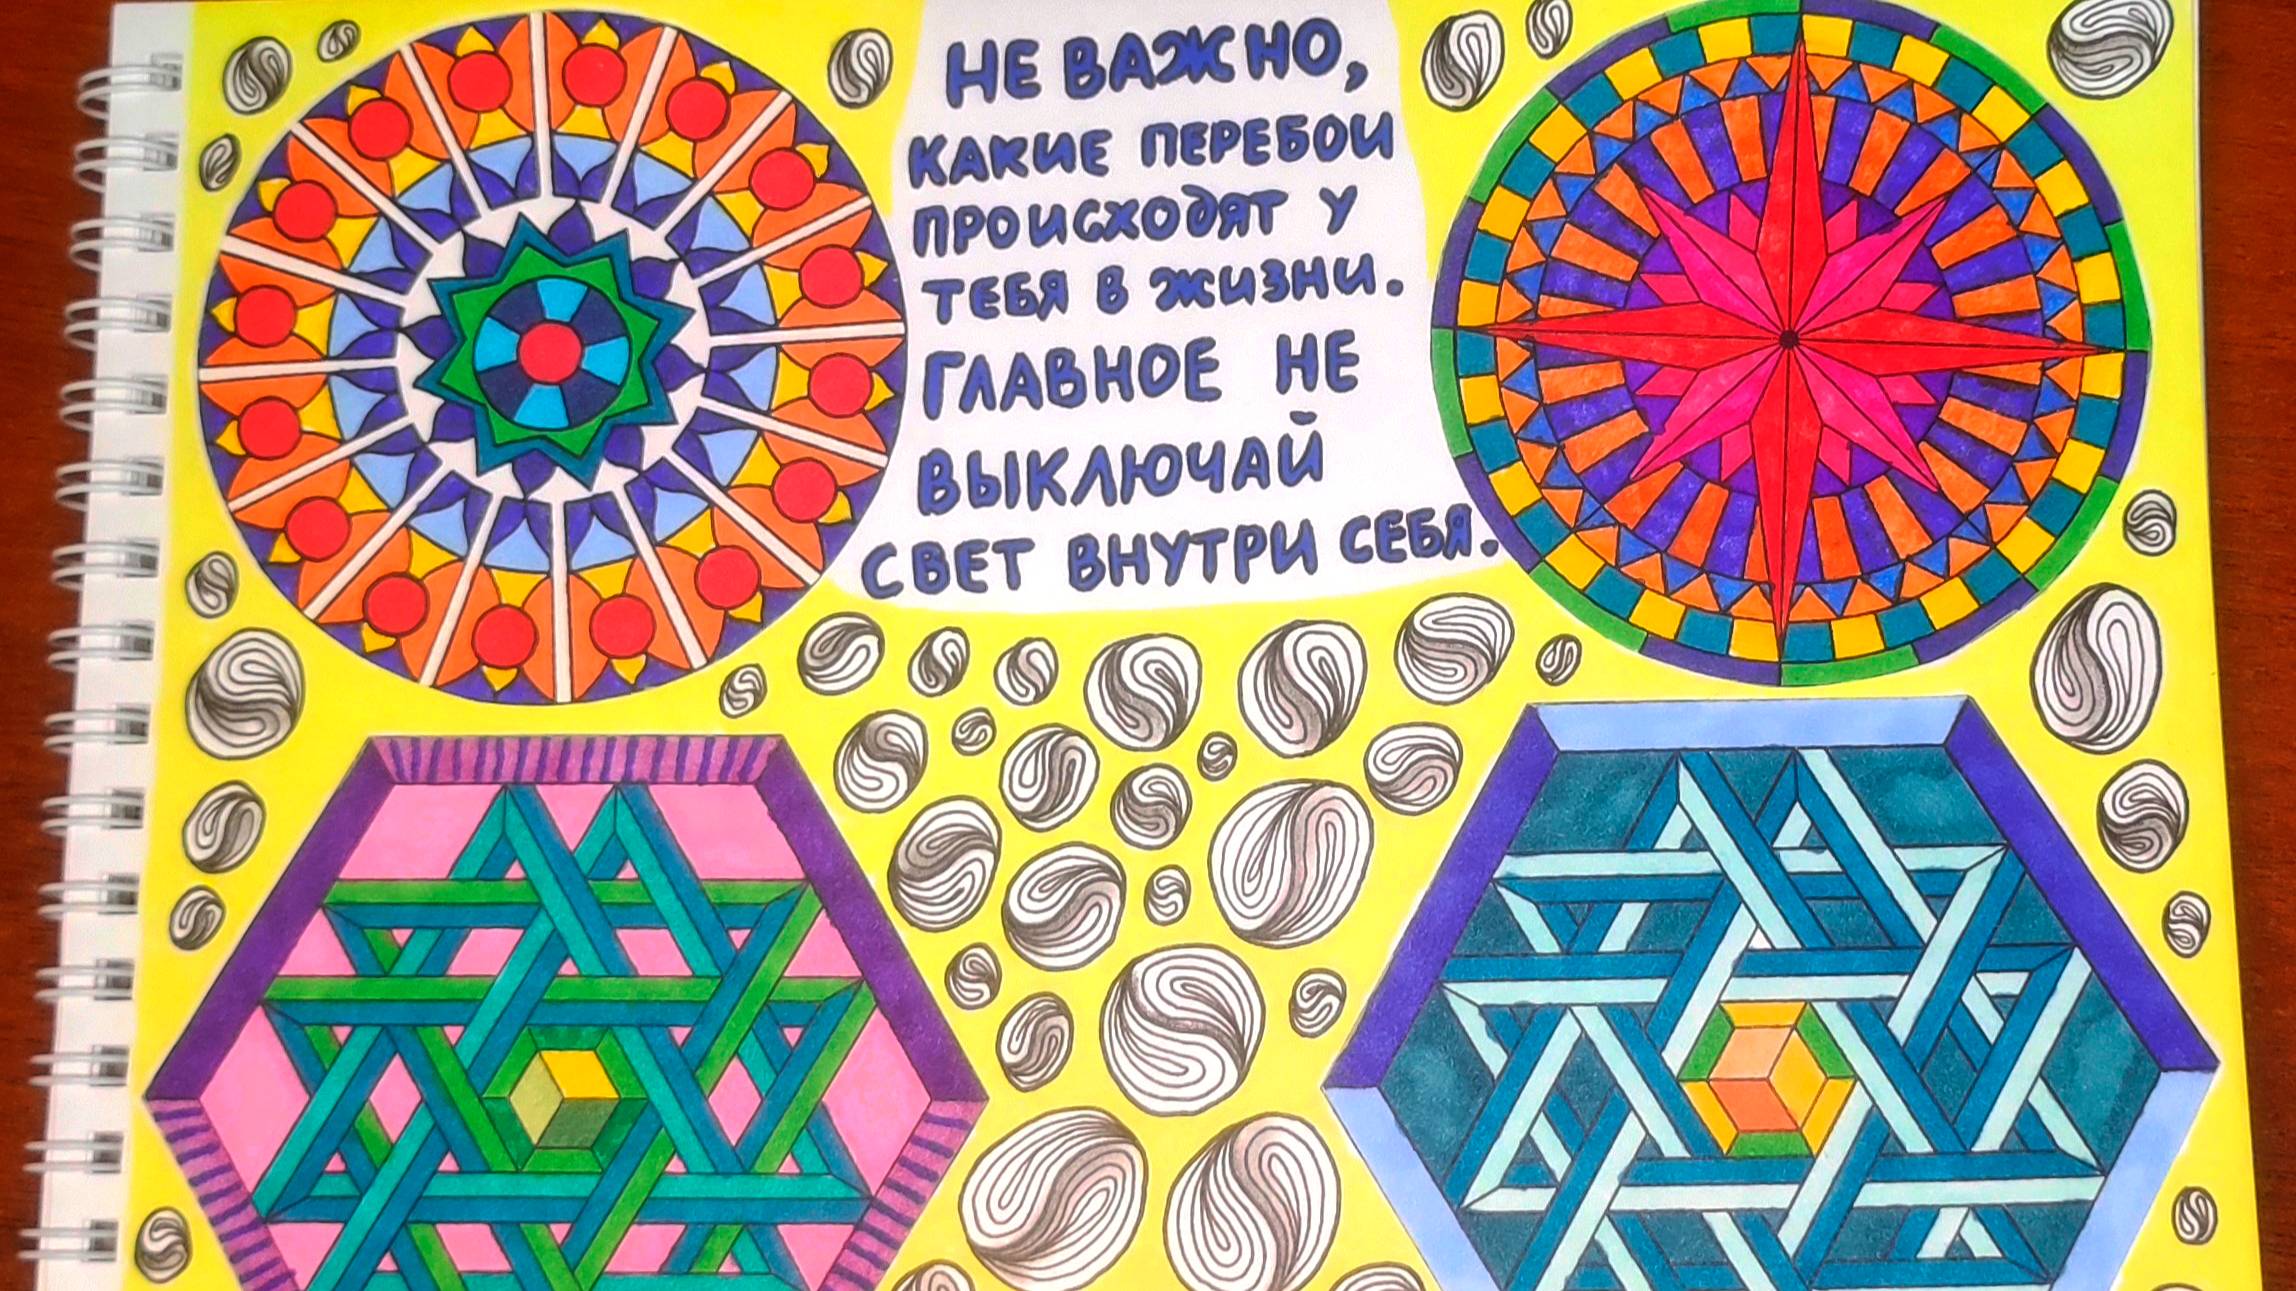 НЕ ВАЖНО,
КАКИЕ ПЕРЕБОИ
ПРОИСХОДЯТ У
ТЕБЯ В ЖИЗНИ.
ГЛАВНОЕ НЕ
ВЫКЛЮЧАЙ
СВЕТ ВНУТРИ СЕБЯ.